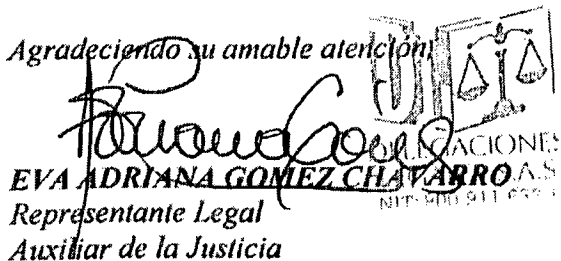 Agradeciendo su amable atención,
EVA ADRIANA GOMEZ CHAVARRO
Representante Legal
Auxiliar de la Justicia